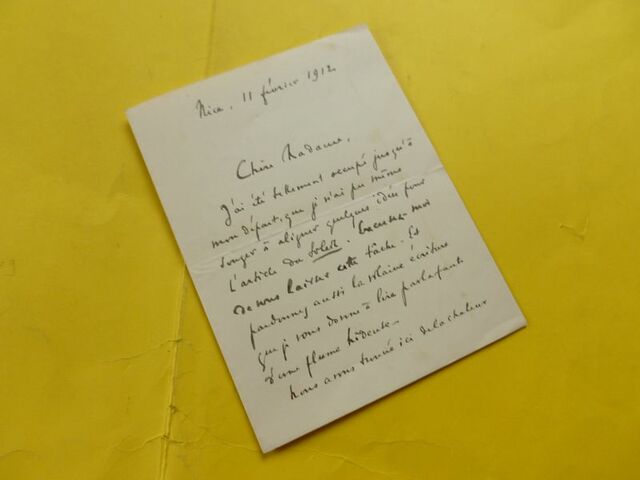 Nice. 11 février 1912
Chère Madame,
J'ai été tellement occupé jusqu'à
mon départ, que je n'ai pu même
songer à aligner quelques idées pour
l'article du Soleil. Excusez-moi
de vous laisser cette tâche. Et
pardonnez aussi la vilaine écriture
que je vous donne à lire par la faute
d'une plume hideuse.
Nous avons trouvé ici de la chaleur